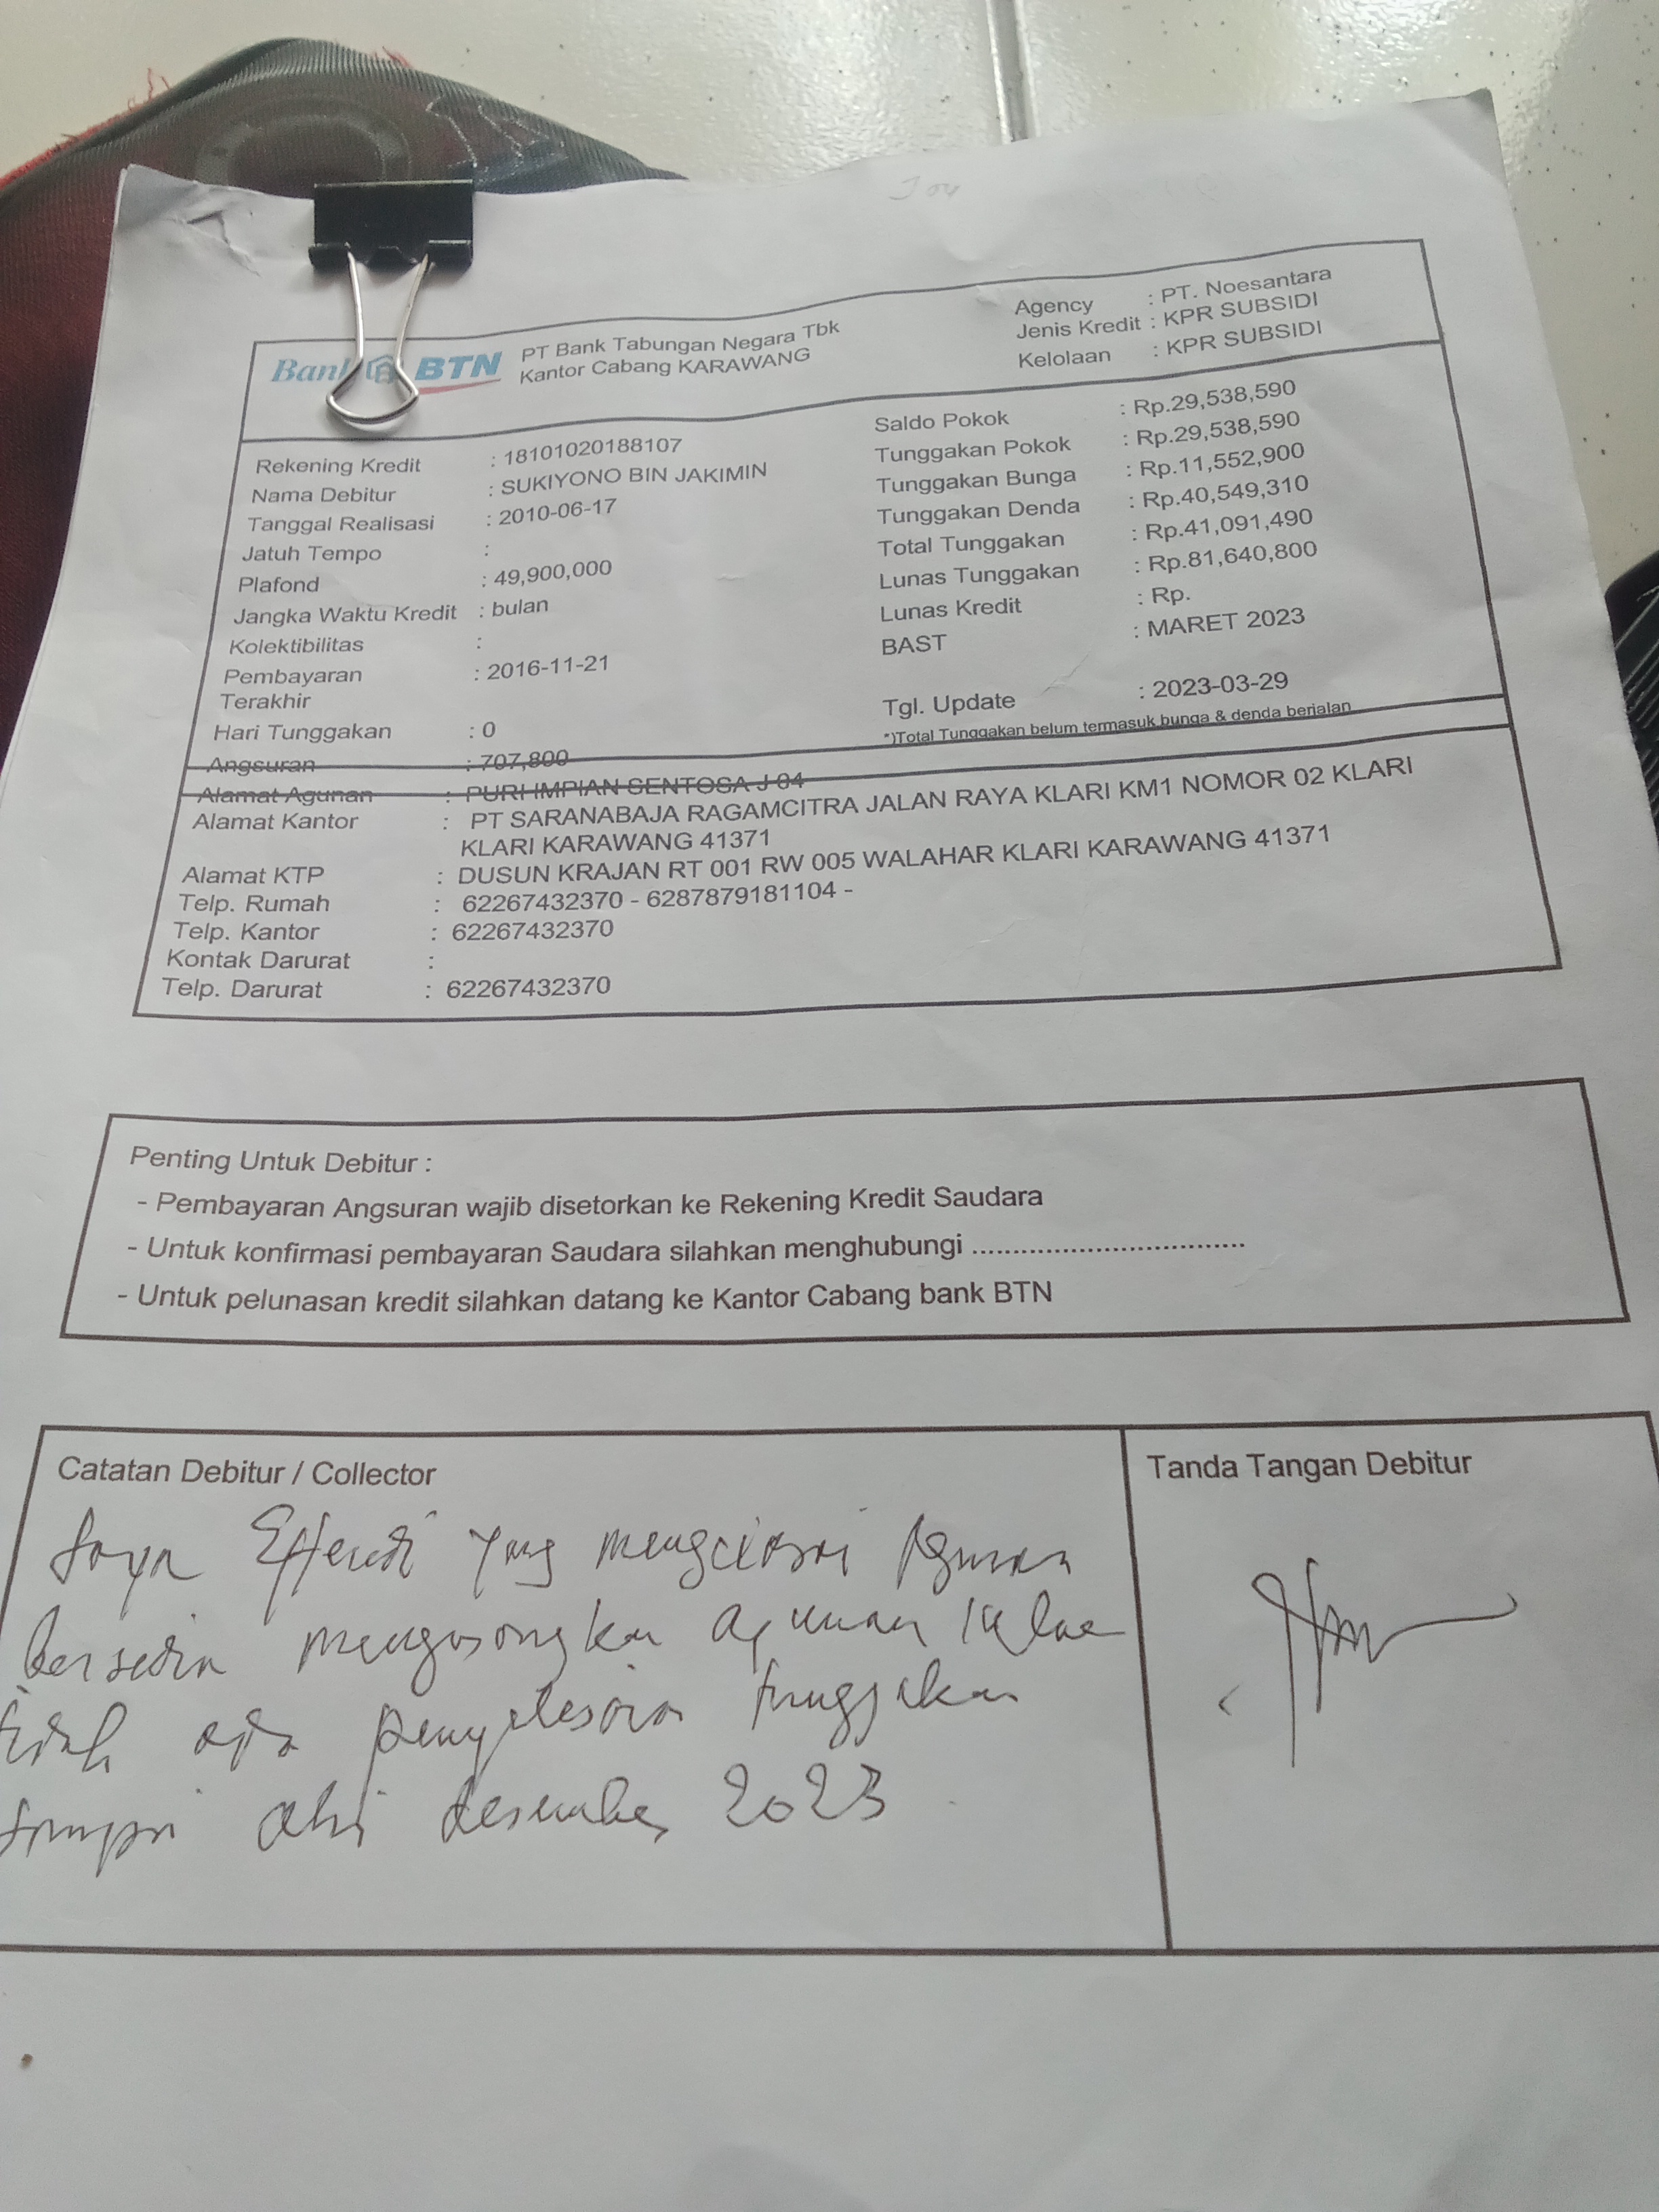 Jou
Bank BTN
PT Bank Tabungan Negara Tbk
Kantor Cabang KARAWANG
Agency : PT. Noesantara
Jenis Kredit : KPR SUBSIDI
Kelolaan : KPR SUBSIDI
Rekening Kredit : 18101020188107
Nama Debitur : SUKIYONO BIN JAKIMIN
Tanggal Realisasi : 2010-06-17
Jatuh Tempo :
Plafond : 49,900,000
Jangka Waktu Kredit : bulan
Kolektibilitas :
Pembayaran Terakhir : 2016-11-21
Hari Tunggakan : 0
Angsuran : 707,800
Saldo Pokok : Rp.29,538,590
Tunggakan Pokok : Rp.29,538,590
Tunggakan Bunga : Rp.11,552,900
Tunggakan Denda : Rp.40,549,310
Total Tunggakan : Rp.41,091,490
Lunas Tunggakan : Rp.81,640,800
Lunas Kredit : Rp.
BAST : MARET 2023
Tgl. Update : 2023-03-29
*)Total Tunggakan belum termasuk bunga & denda berjalan
Alamat Agunan : PURI IMPIAN SENTOSA J 04
Alamat Kantor : PT SARANABAJA RAGAMCITRA JALAN RAYA KLARI KM1 NOMOR 02 KLARI
KLARI KARAWANG 41371
Alamat KTP : DUSUN KRAJAN RT 001 RW 005 WALAHAR KLARI KARAWANG 41371
Telp. Rumah : 62267432370 - 6287879181104 -
Telp. Kantor : 62267432370
Kontak Darurat :
Telp. Darurat : 62267432370
Penting Untuk Debitur :
- Pembayaran Angsuran wajib disetorkan ke Rekening Kredit Saudara
- Untuk konfirmasi pembayaran Saudara silahkan menghubungi .................................
- Untuk pelunasan kredit silahkan datang ke Kantor Cabang bank BTN
Catatan Debitur / Collector
Tanda Tangan Debitur
Saya Effendi yang menguasai Agunan
bersedia mengosongkan agunan kalau
tidak ada penyelesaian tunggakan
sampai akhir desember 2023